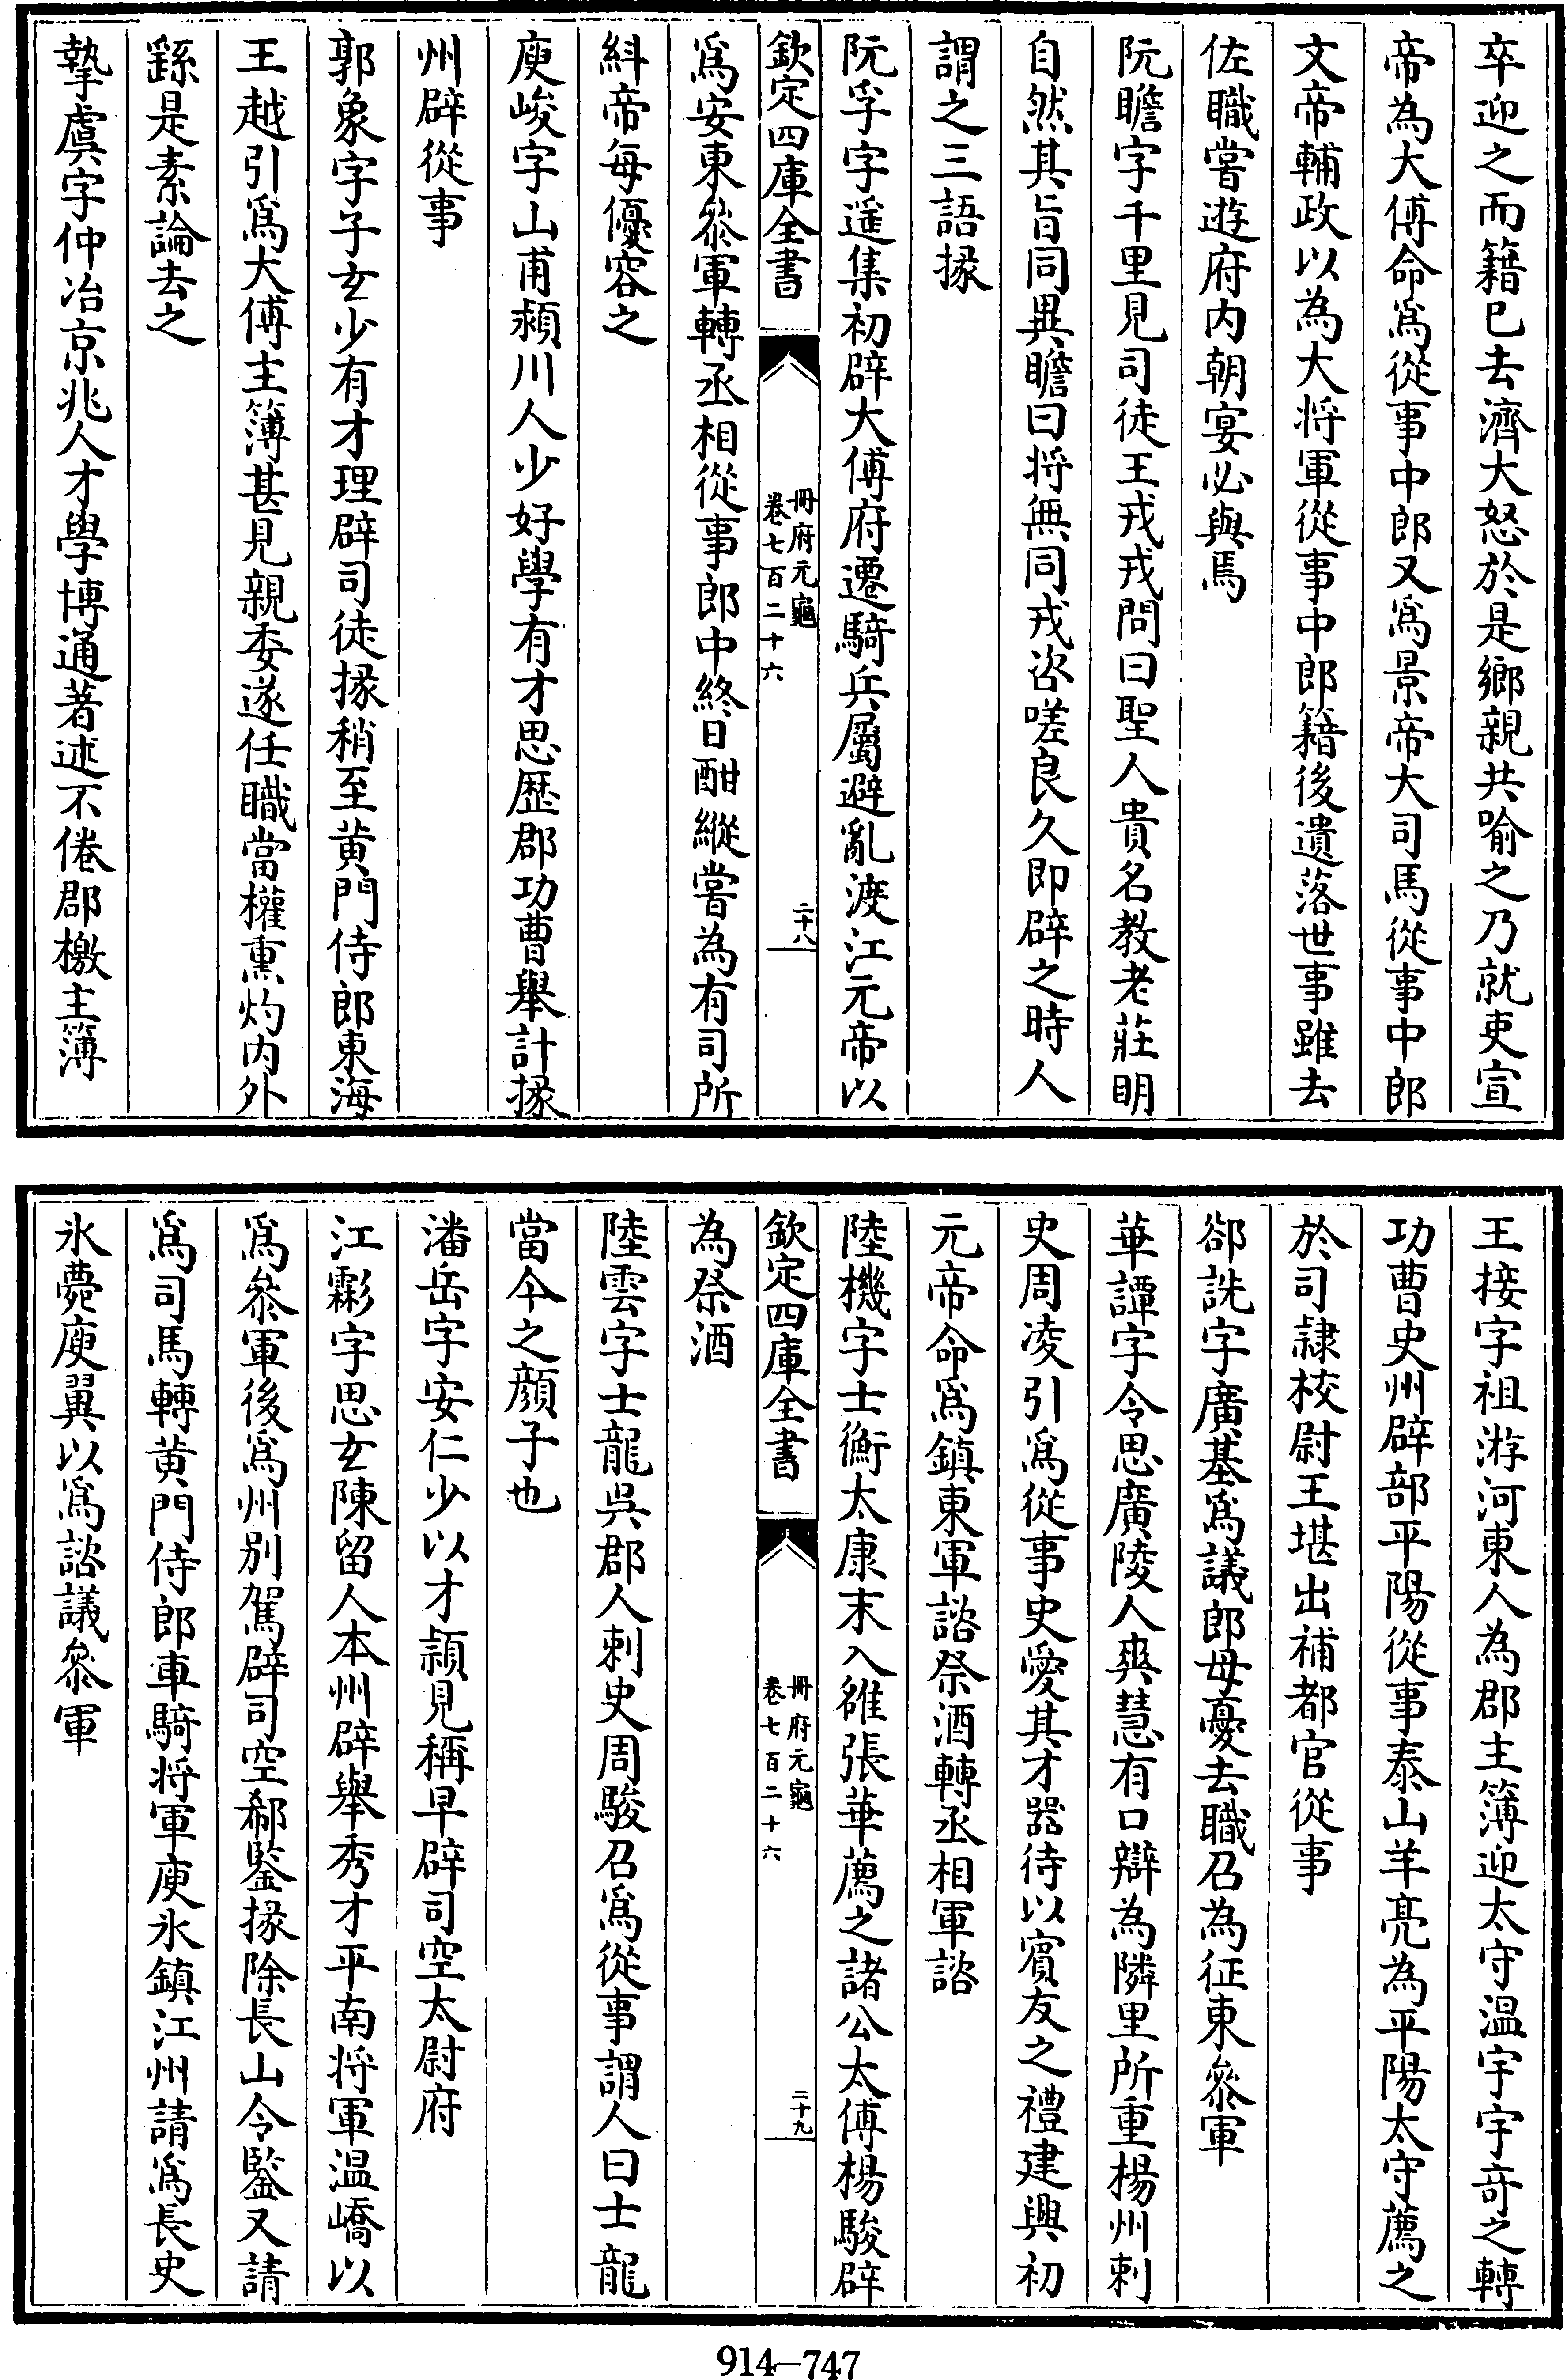 卒迎之而籍已去濟大怒於是鄉親共喻之乃就吏宣
帝為大傅命為從事中郎又為景帝大司馬從事中郎
文帝輔政以為大將軍從事中郎籍後遺落世事雖去
佐職嘗遊府内朝宴必與焉
阮瞻字千里見司徒王戎戎問曰聖人貴名教老莊明
自然其旨同異瞻曰將無同戎咨嗟良久即辟之時人
謂之三語掾
阮孚字遥集初辟大傅府遷騎兵屬避亂渡江元帝以
欽定四庫全書
冊府元龜
卷七百二十六
二十八
為安東叅軍轉丞相從事郎中終日酣縱嘗為有司所
糾帝每優容之
庾峻字山甫潁川人少好學有才思歴郡功曹舉計掾
州辟從事
郭象字子玄少有才理辟司徒掾稍至黄門侍郎東海
王越引為大傅主簿甚見親委遂任職當權熏灼内外
繇是素論去之
摯虞字仲冶京兆人才學博通著述不倦郡檄主簿
王接字祖游河東人為郡主簿迎太守温宇宇竒之轉
功曹史州辟部平陽從事泰山羊亮為平陽太守薦之
於司隷校尉王堪出補都官從事
郤詵字廣基為議郎母憂去職召為征東叅軍
華譚字令思廣陵人爽慧有口辯為隣里所重楊州刺
史周凌引為從事史愛其才器待以賓友之禮建興初
元帝命為鎮東軍諮祭酒轉丞相軍諮
陸機字士衡太康末入雒張華薦之諸公太傅楊駿辟
欽定四庫全書
冊府元龜
卷七百二十六
二十九
為祭酒
陸雲字士龍吳郡人刺史周駿召為從事謂人曰士龍
當今之顔子也
潘岳字安仁少以才頴見稱早辟司空太尉府
江虨字思玄陳留人本州辟舉秀才平南將軍温嶠以
為叅軍後為州别駕辟司空郗鑒掾除長山令鑒又請
為司馬轉黄門侍郎車騎將軍庾氷鎮江州請為長史
氷薨庾翼以為諮議叅軍
914—747